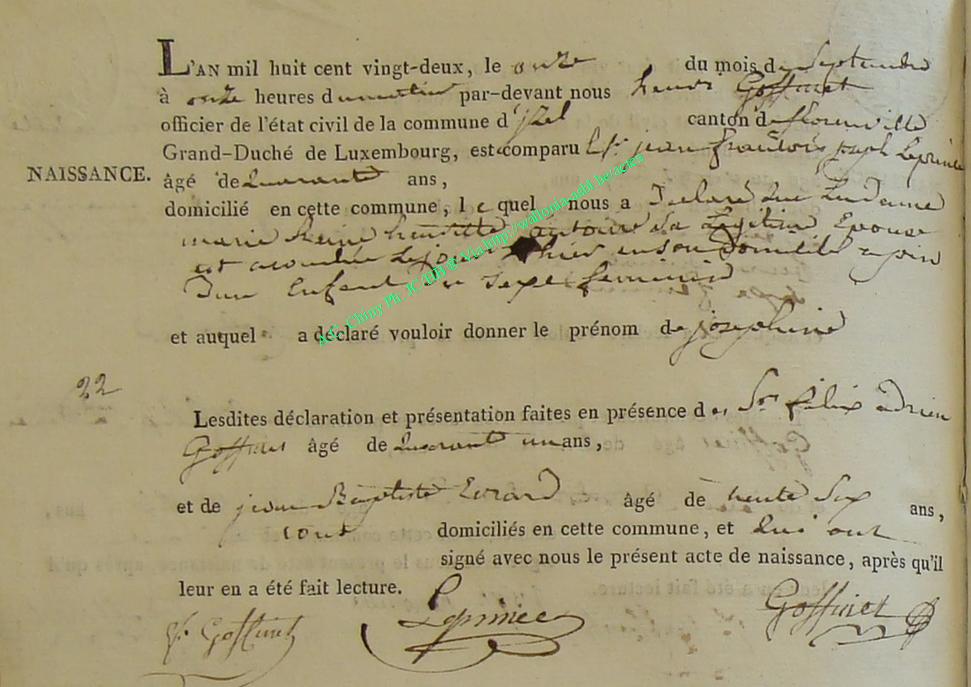 L'AN mil huit cent vingt-deux, le onze du mois de Septembre
à onze heures du matin par-devant nous henri Goffinet
officier de l'état civil de la commune d'jzel canton de florenville
Grand-Duché de Luxembourg, est comparu le Sr. jean françois joseph Leprince
NAISSANCE.
âgé de Quarante ans,
domicilié en cette commune, le quel nous a Declaré que la dame
marie henriette antoine sa Legitime Epouse
est acouchée le jour hier en son Domicile
D'un Enfant du Sexe feminin
et auquel a déclaré vouloir donner le prénom de josephine
22
Lesdites déclaration et présentation faites en présence des Sr. felix adrien
Goffinet âgé de Quarante un ans,
et de jean Baptiste Evrard âgé de trente Six ans,
tous domiciliés en cette commune, et Qui ont
signé avec nous le présent acte de naissance, après qu'il
leur en a été fait lecture.
f. Goffinet Leprince Goffinet